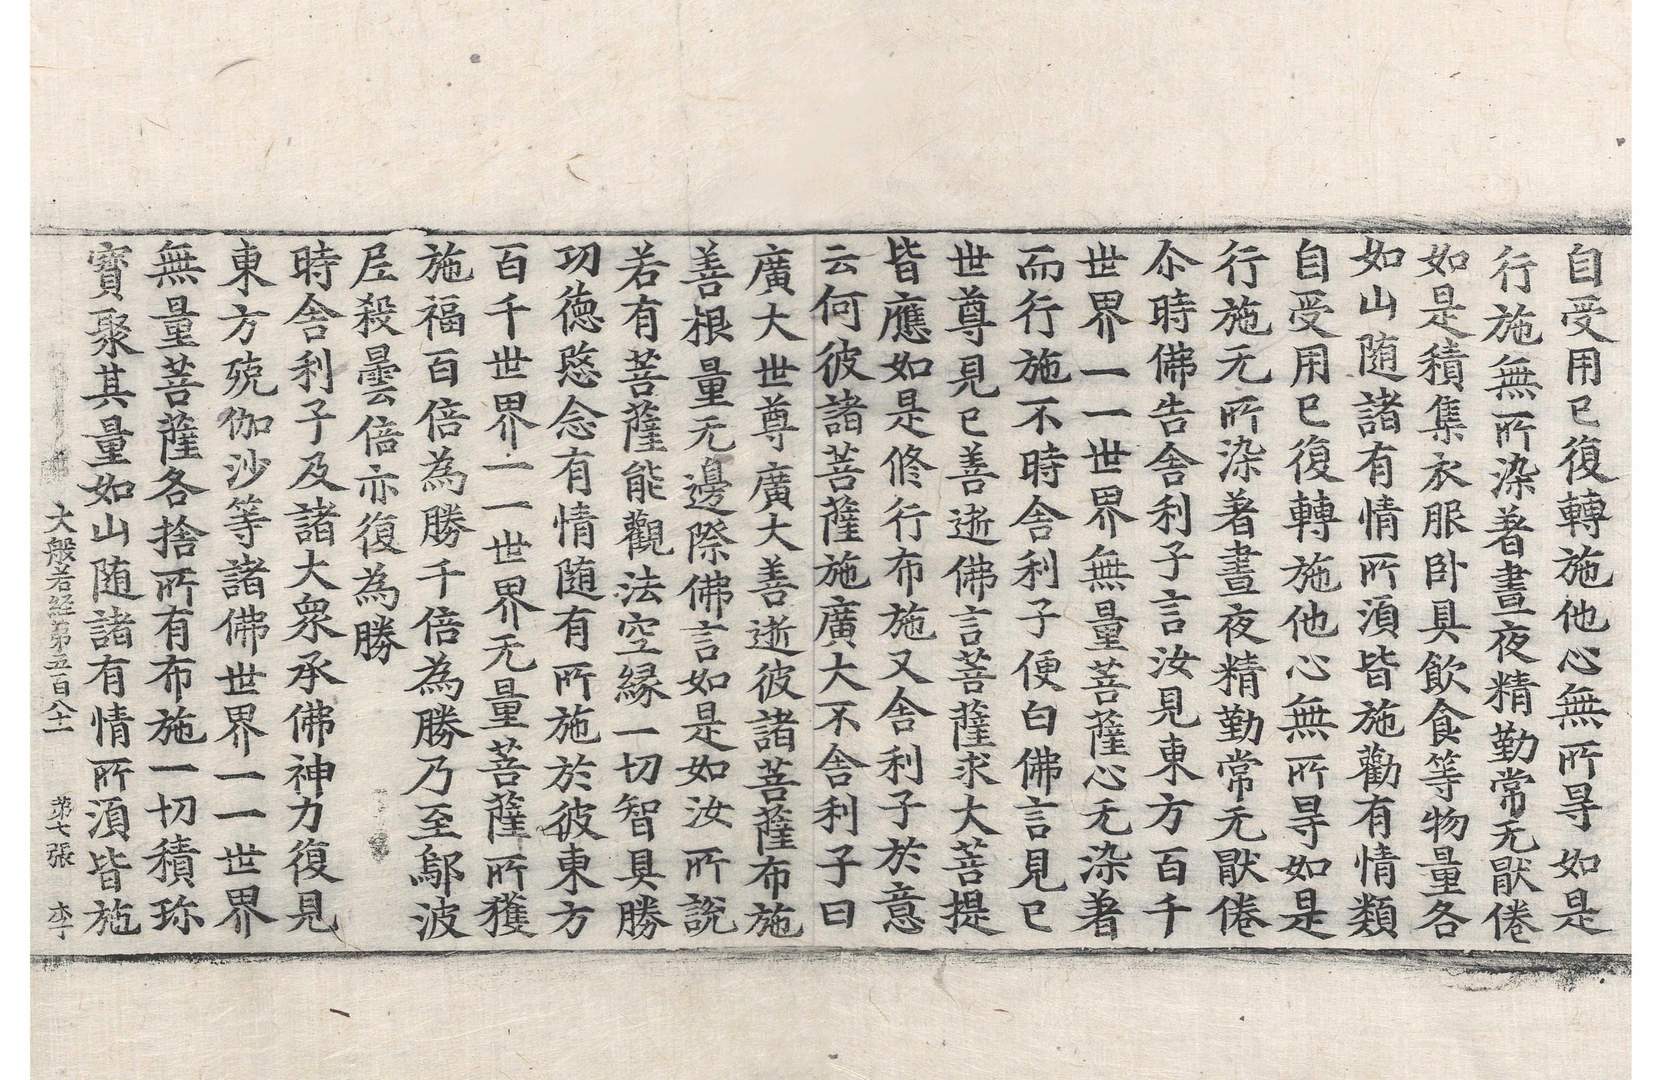 自受用已復轉施他心無所㝵如是
行施無所染著晝夜精勤常无猒倦
如是積集衣服卧具飮食等物量各
如山随諸有情所湏皆施勸有情類
自受用已復轉施他心無所㝵如是
行施无所染著晝夜精勤常无猒倦
尒時佛告舍利子言汝見東方百千
世界一一世界無量菩薩心无染著
而行施不時舍利子便白佛言見已
世尊見已善逝佛言菩薩求大菩提
皆應如是修行布施又舍利子於意
云何彼諸菩薩施廣大不舍利子曰
廣大世尊廣大善逝彼諸菩薩布施
善根量无邊際佛言如是如汝所說
若有菩薩能觀法空縁一切智具勝
功徳慜念有情随有所施於彼東方
百千世界一一世界无量菩薩所獲
施福百倍為勝千倍為勝乃至鄔波
尼殺曇倍亦復為勝
時舍利子及諸大衆承佛神力復見
東方殑伽沙等諸佛世界一一世界
無量菩薩各捨所有布施一切積珎
寳聚其量如山随諸有情所湏皆施
大般若経第五百八十一 第七張 李